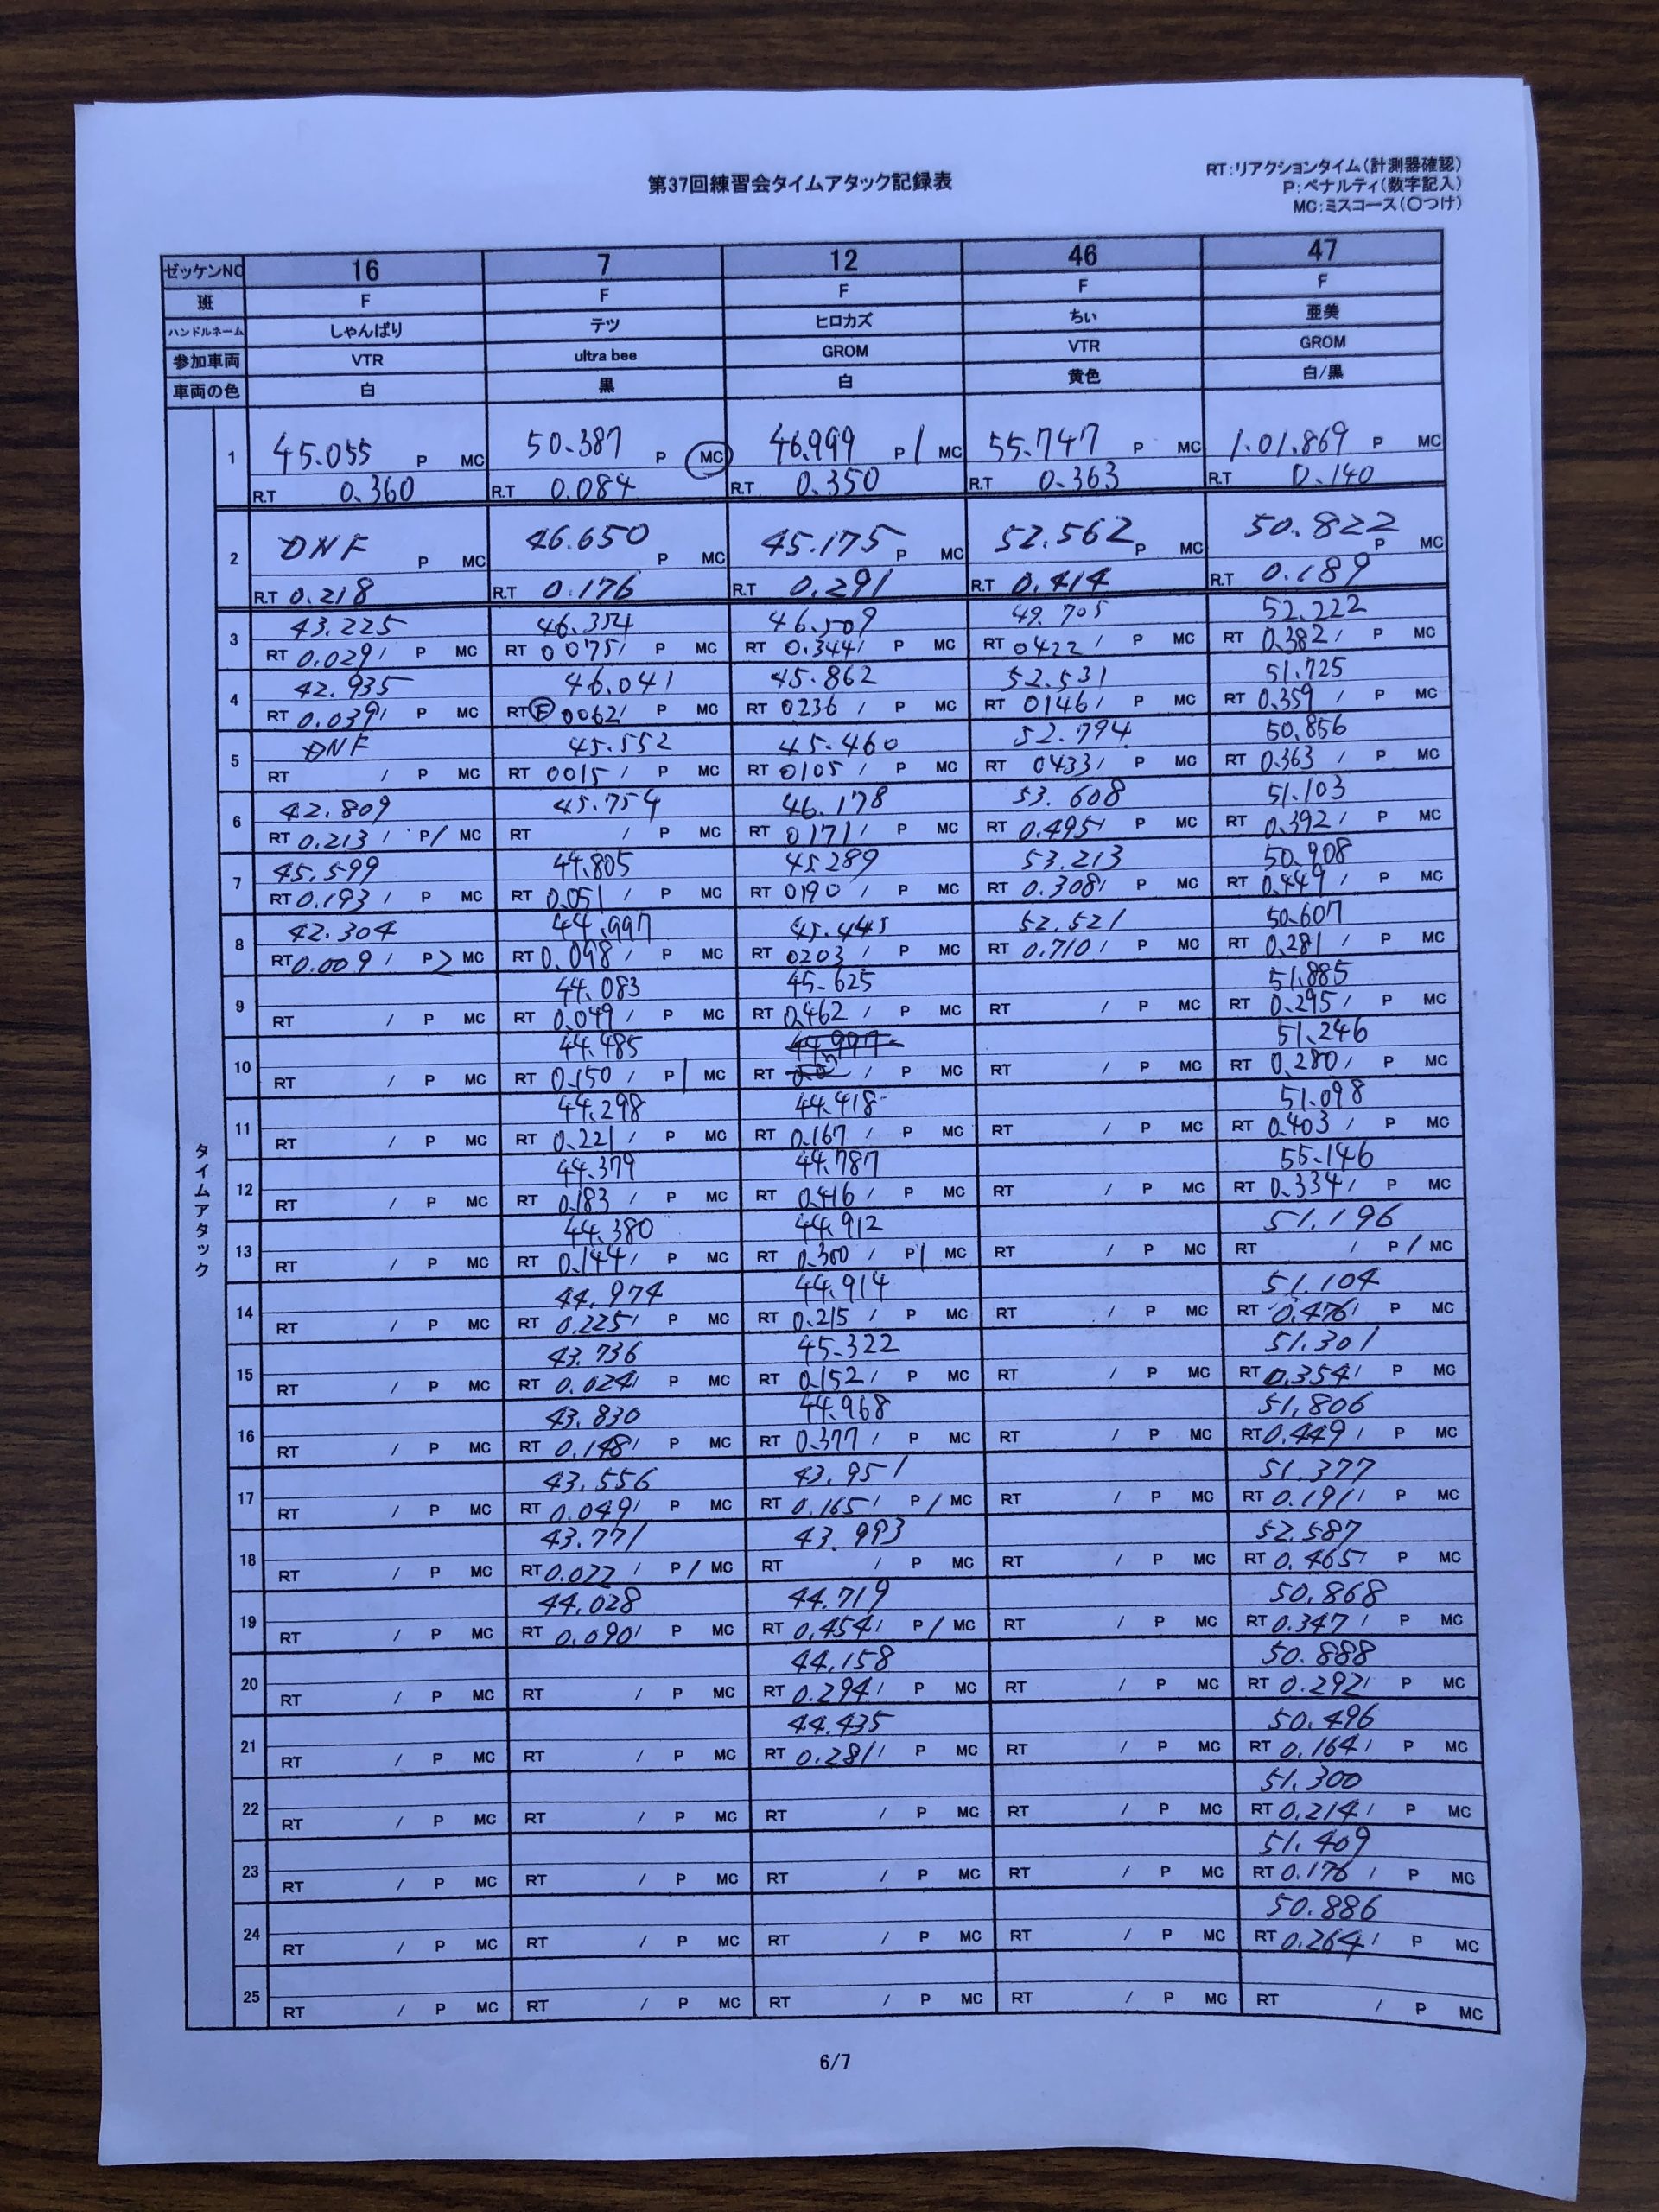 第37回練習会タイムアタック記録表
RT:リアクションタイム(計測器確認)
P:ペナルティ(数字記入)
MC:ミスコース(〇つけ)
ゼッケンNO 16 7 12 46 47
班 F F F F F
ハンドルネーム しゃんぱり テツ ヒロカズ ちぃ 亜美
参加車両 VTR ultra bee GROM VTR GROM
車両の色 白 黒 白 黄色 白/黒
タイムアタック
1 45.055 P MC 50.387 P MC 46.999 P / MC 55.747 P MC 1.01.869 P MC
R.T 0.360 R.T 0.084 R.T 0.350 R.T 0.363 R.T 0.140
2 DNF P MC 46.650 P MC 45.175 P MC 52.562 P MC 50.822 P MC
R.T 0.218 R.T 0.176 R.T 0.291 R.T 0.414 R.T 0.189
43.225 46.354 46.509 49.705 52.222
3 RT 0.029 / P MC RT 0075 / P MC RT 0.344 / P MC RT 0422 / P MC RT 0.382 / P MC
42.935 46.041 45.862 52.531 51.725
4 RT 0.039 / P MC RT F 0062 / P MC RT 0236 / P MC RT 0146 / P MC RT 0.359 / P MC
DNF 45.552 45.460 52.794 50.856
5 RT / P MC RT 0015 / P MC RT 0105 / P MC RT 0433 / P MC RT 0.363 / P MC
42.809 45.754 46.178 53.608 51.103
6 RT 0.213 / P / MC RT / P MC RT 0171 / P MC RT 0.495 / P MC RT 0.392 / P MC
45.599 44.805 45.289 53.213 50.908
7 RT 0.193 / P MC RT 0.051 / P MC RT 0190 / P MC RT 0.308 / P MC RT 0.449 / P MC
42.304 44.997 45.445 52.521 50.607
8 RT 0.009 / P 2 MC RT 0.098 / P MC RT 0203 / P MC RT 0.710 / P MC RT 0.281 / P MC
44.083 45.625 51.885
9 RT / P MC RT 0.049 / P MC RT 0.462 / P MC RT / P MC RT 0.295 / P MC
44.485 44.997 51.246
10 RT / P MC RT 0.150 / P | MC RT / P MC RT / P MC RT 0.280 / P MC
44.298 44.418 51.098
11 RT / P MC RT 0.221 / P MC RT 0.167 / P MC RT / P MC RT 0.403 / P MC
44.379 44.787 55.146
12 RT / P MC RT 0.183 / P MC RT 0.416 / P MC RT / P MC RT 0.334 / P MC
44.380 44.912 51.196
13 RT / P MC RT 0.144 / P MC RT 0.300 / P | MC RT / P MC RT / P / MC
44.974 44.914 51.104
14 RT / P MC RT 0.225 / P MC RT 0.215 / P MC RT / P MC RT 0.476 / P MC
43.736 45.322 51.301
15 RT / P MC RT 0.024 / P MC RT 0.152 / P MC RT / P MC RT 0.354 / P MC
43.830 44.968 51.806
16 RT / P MC RT 0.148 / P MC RT 0.377 / P MC RT / P MC RT 0.449 / P MC
43.556 43.951 51.377
17 RT / P MC RT 0.049 / P MC RT 0.165 / P / MC RT / P MC RT 0.191 / P MC
43.771 43.993 52.587
18 RT / P MC RT 0.022 / P / MC RT / P MC RT / P MC RT 0.465 / P MC
44.028 44.719 50.868
19 RT / P MC RT 0.090 / P MC RT 0.454 / P / MC RT / P MC RT 0.347 / P MC
44.158 50.888
20 RT / P MC RT / P MC RT 0.294 / P MC RT / P MC RT 0.292 / P MC
44.435 50.496
21 RT / P MC RT / P MC RT 0.281 / P MC RT / P MC RT 0.164 / P MC
51.300
22 RT / P MC RT / P MC RT / P MC RT / P MC RT 0.214 / P MC
51.409
23 RT / P MC RT / P MC RT / P MC RT / P MC RT 0.176 / P MC
50.886
24 RT / P MC RT / P MC RT / P MC RT / P MC RT 0.264 / P MC
25 RT / P MC RT / P MC RT / P MC RT / P MC RT / P MC
6/7